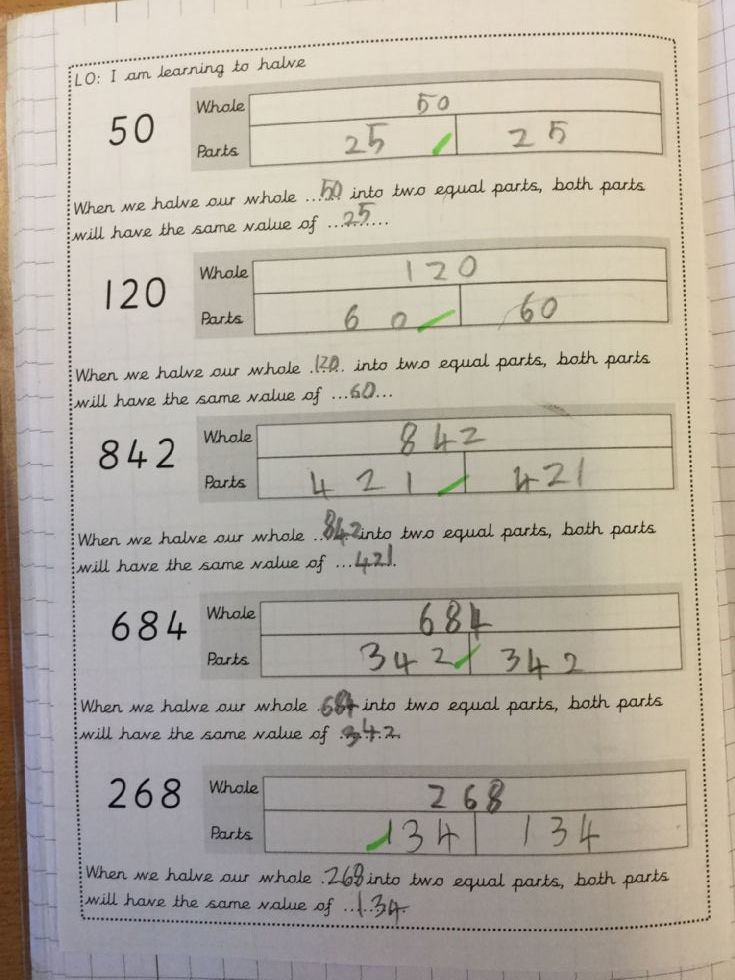 LO: I am learning to halve
50
Whole 50
Parts 25 25
When we halve our whole ...50... into two equal parts, both parts
will have the same value of ...25......
120
Whole 120
Parts 60 60
When we halve our whole .120. into two equal parts, both parts
will have the same value of ...60...
842
Whole 842
Parts 421 421
When we halve our whole ..842 into two equal parts, both parts
will have the same value of ...421.
684
Whole 684
Parts 342 342
When we halve our whole .684 into two equal parts, both parts
will have the same value of .342.
268
Whole 268
Parts 134 134
When we halve our whole .268 into two equal parts, both parts
will have the same value of ...134